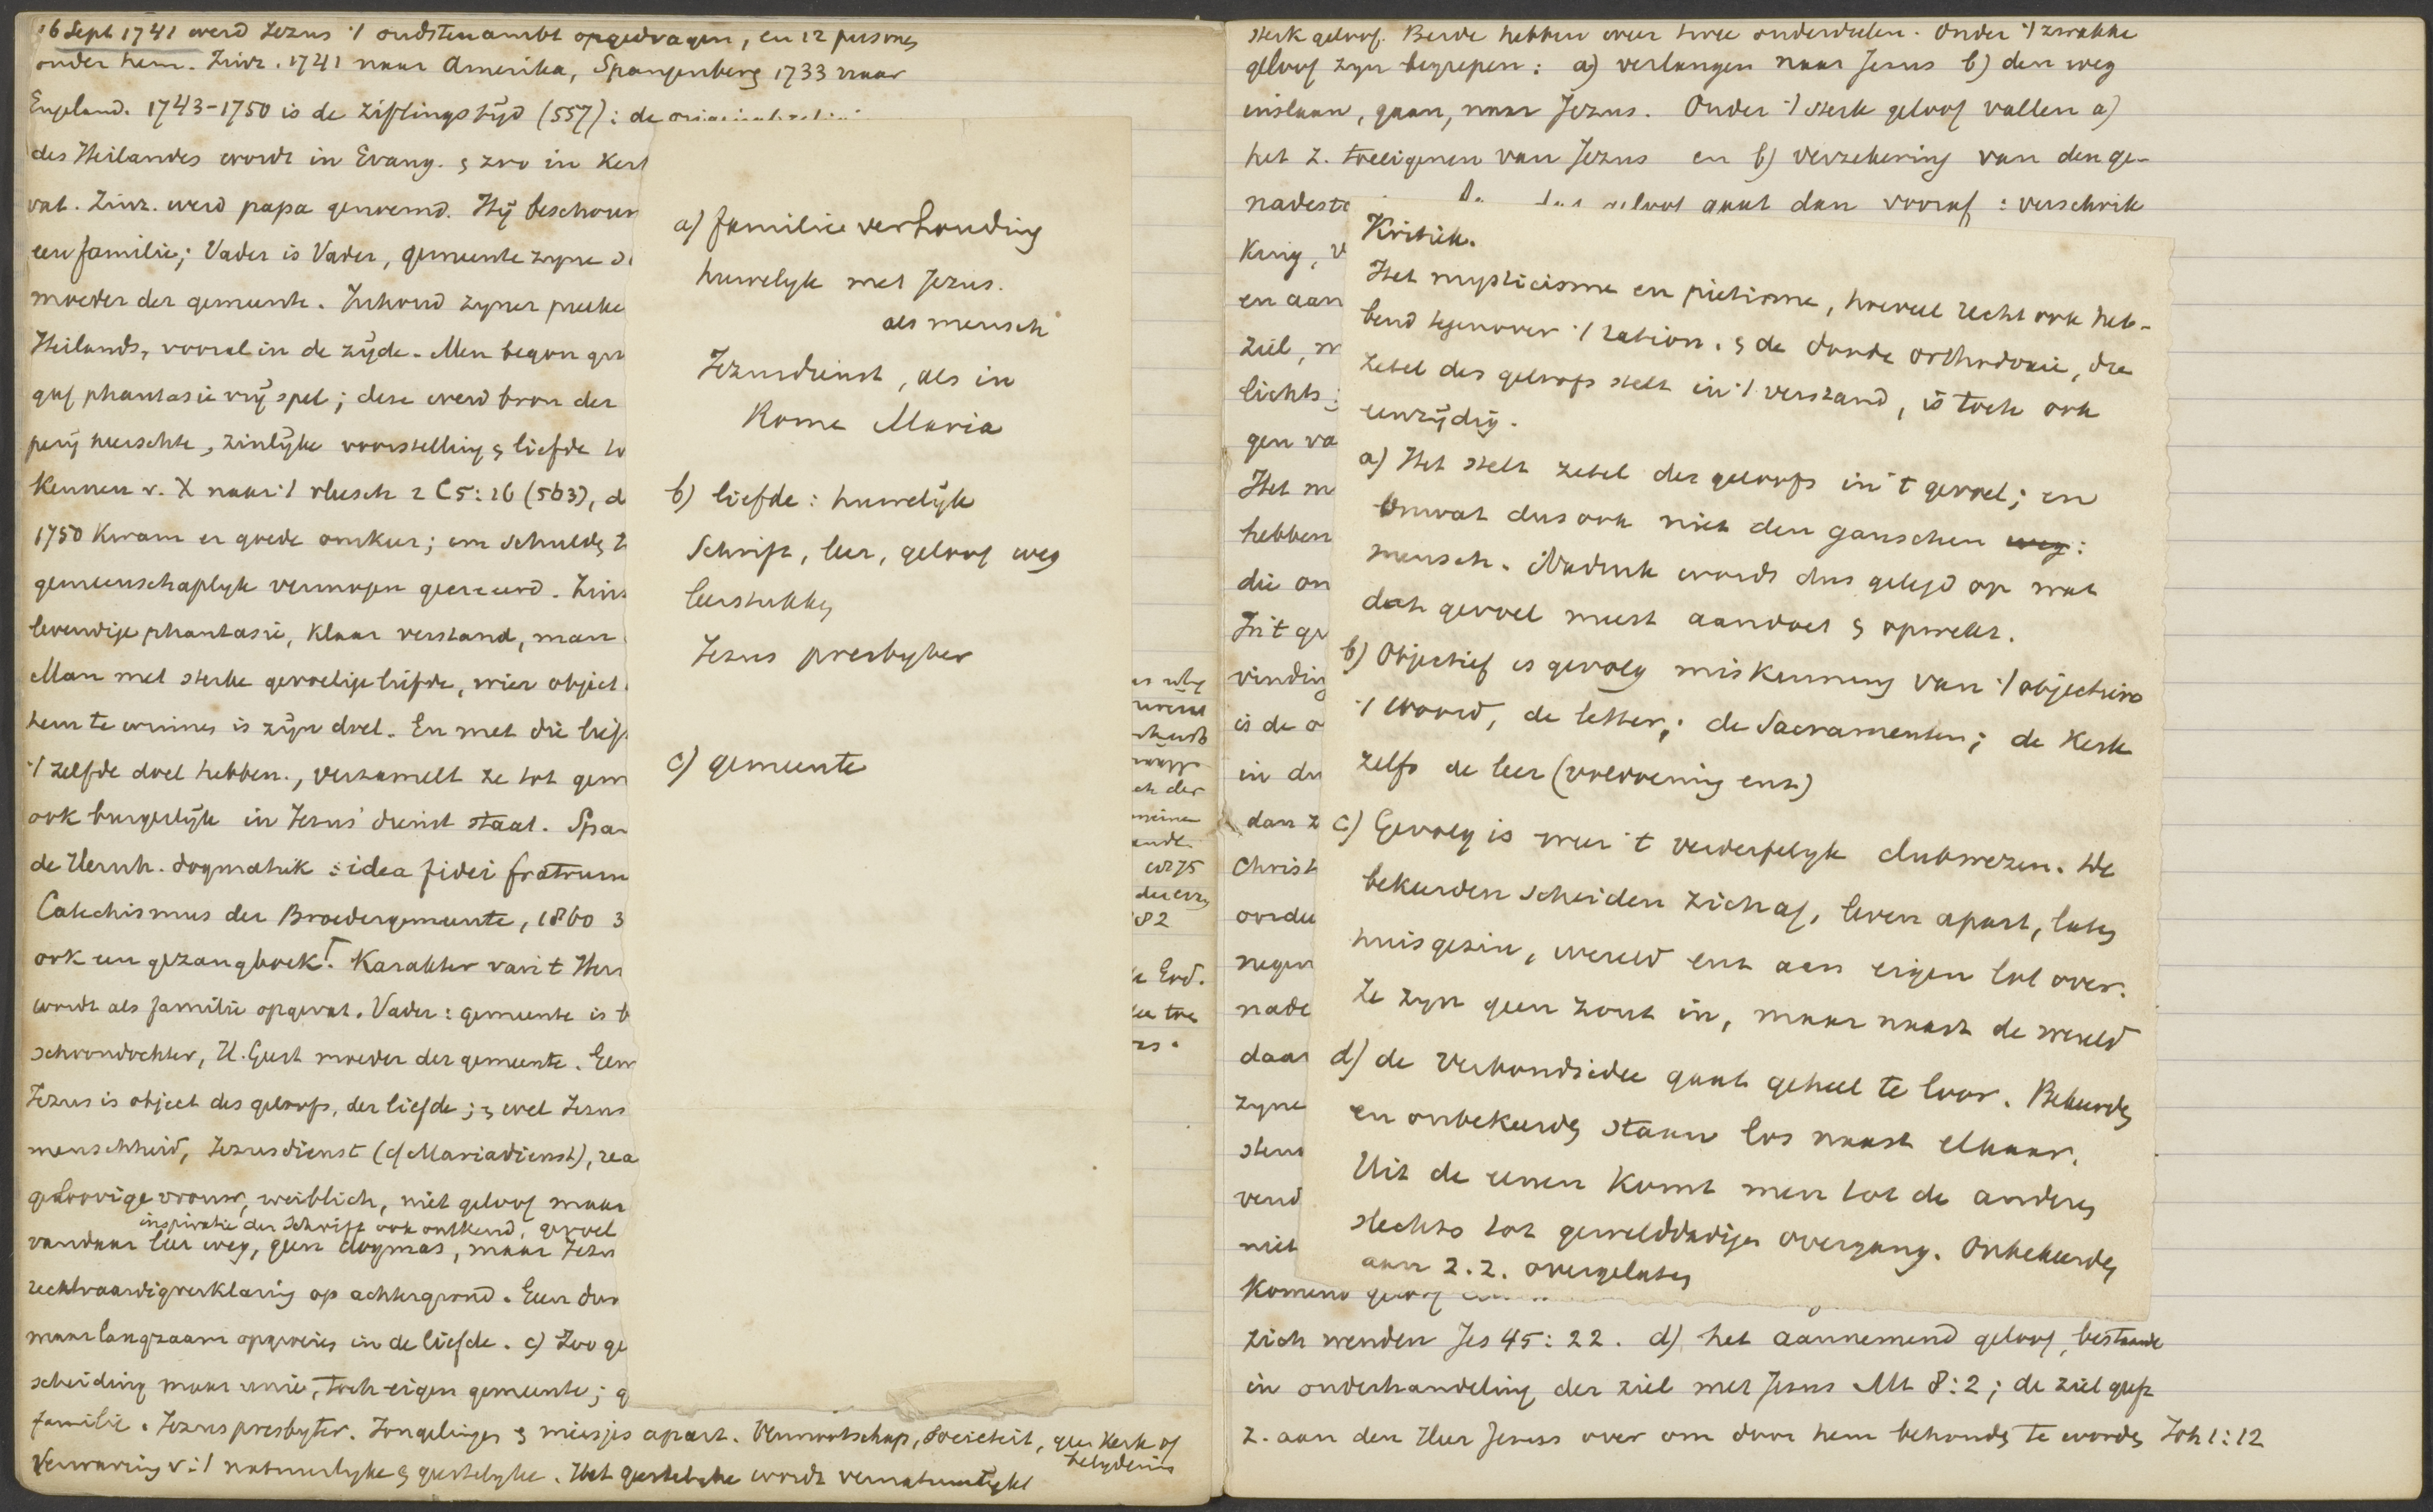 16 Sept 1741 werd Jezus 't oudstenambt opgedragen, en 12 persones
onder hem. Zinz. 1741 naar Amerika, Spangenberg 1733 naar
Engeland. 1743-1750 is de ziftingstijd (557): de
des Heilandes wordt in Evang. & zoo in Kerk
vat. Zinz. werd papa genoemd. Hij beschouw
een familie; Vader is Vader, gemeente zyne
moeder der gemeente. Inhoud zyner preke
Heilands, vooral in de zijde. Men begon
gaf phantasie vrij spel; deze werd bron der
perij heerschte, zinlijke voorstelling & liefde
Kennen v. X naar 't vleesch 2 C 5:16 (563), d
1750 Kwam er goede omkeer; en schulds
gemeenschaplyk vermogen gecreeerd. Zinz
levendige phantasie, klaar verstand, man
Man met sterke gevoelige liefde, wier object
hem te winnes is zijn doel. En met die
't zelfde doel hebben, verzamelt ze tot gem
ook burgerlijk in Jezus' dienst staat. Spa
de Hernh. dogmatiek: idea fidei fratrum
Catechismus der Broedergemeente, 1860 3
ook een gezangboek. Karakter van 't Her
wordt als familie opgevat. Vader: gemeente is
schoondochter, H. Geest moeder der gemeente.
Jezus is object des geloofs, der liefde; & wel Jezus
menschheid, Jezusdienst (cf Mariadienst),
geloovige vrouw, weiblich, niet geloof maar
inspiratie der Schrift ook ontkend, gevoel
vandaar leer weg, geen dogmas, maar Jezus
rechtvaardigverklaring op achtergrond. Een
maar langzaam opgroeien in de liefde. c) Zoo ge
scheiding maar unie, toch eigen gemeente; g
familie. Jezus presbyter. Jongelingen & meisjes apart. Vennootschap, Societeit, geen Kerk of
belydenis
Verwarring v. 't natuurlyke & geestelyke. Het geestelyke wordt vernatuurlykt
a) familie verhouding
huwelyk met Jezus.
als mensch
Jezusdienst, als in
Rome Maria
b) liefde: huwelijk
Schrift, leer, geloof weg
leerstukkes
Jezus presbyter
c) gemeente
ch der
82
sterk geloof. Beide hebben weer twee onderdeelen. Onder 't zwakke
geloof zyn begrepen: a) verlangen naar Jezus b) den weg
inslaan, gaan, naar Jezus. Onder 't sterk geloof vallen a)
het z. toeeigenen van Jezus en b) verzekering van den ge-
nadest geloof gaat dan vooraf: verschrik
King, v
en aan
ziel,
lichts;
gen va
Het m
hebben
die on
In 't ge
vinding
is de o
in de
dan z
Christ
oorde
negen
nade
daar
zyne
sten
vend
niet
Komend geloof
zich wenden Jes 45:22. d) het aannemend geloof, bestaande
in onderhandeling der ziel met Jezus Mt 8:2; de ziel geeft
z. aan den Heer Jezus over om door hem behouds te wordes Joh 1:12
Kritiek.
Het mysticisme en pietisme, hoeveel recht ook heb-
bend tegenover 't ration. & de doode orthodoxie, die
zetel des geloofs stelt in 't verstand, is toch ook
eenzijdig.
a) Het stelt zetel des geloofs in 't gevoel; en
omvat dus ook niet den ganschen weg:
mensch. Nadruk wordt dus gelegd op wat
dat gevoel meest aandoet & opwekt.
b) Objectief is gevolg miskenning van 't objectieve
't woord, de letter; de Sacramenten; de Kerk
zelfs de leer (voldoening enz)
c) Gevolg is weer 't verderfelyk clubwezen. De
bekeerden scheiden zich af, leven apart, lates
huisgezin, wereld enz aan eigen lot over.
Ze zyn geen zout in, maar naast de wereld
d) de Verbondsidee gaat geheel te loor. Bekeerdes
en onbekeerdes staan los naast elkaar.
Uit de eenen komt men tot de anderes
slechts tot gewelddadigen overgang. Onbekeerdes
aan z.z. overgelates